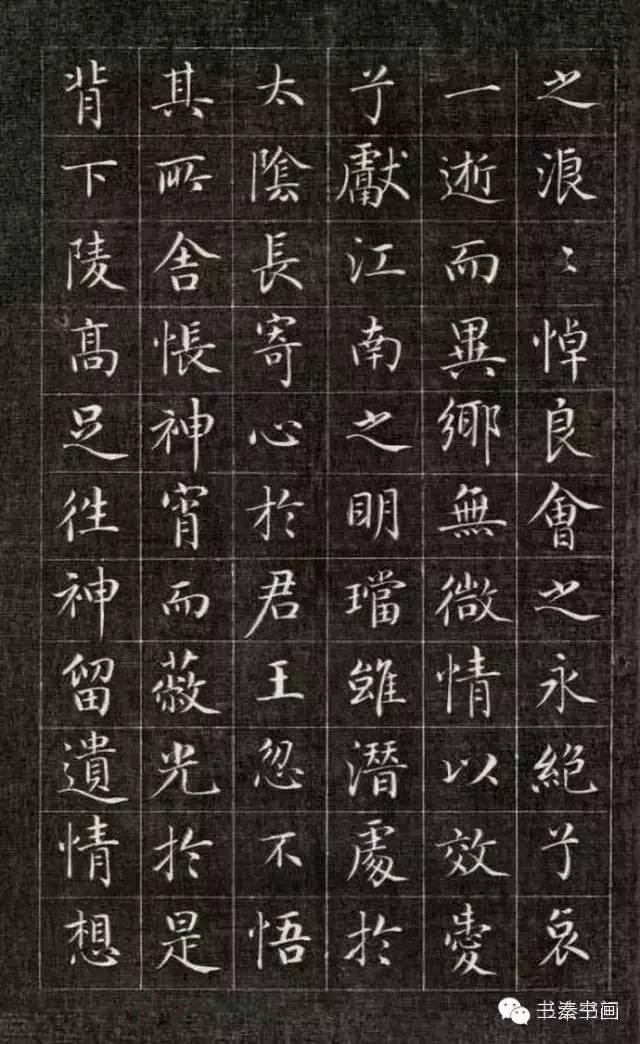 之浪〻悼良會之永絕兮哀
一逝而異鄉無微情以效愛
兮獻江南之明璫雖潛處於
太陰長寄心於君王忽不悟
其所舍悵神宵而蔽光於是
背下陵高足往神留遺情想
书法书画